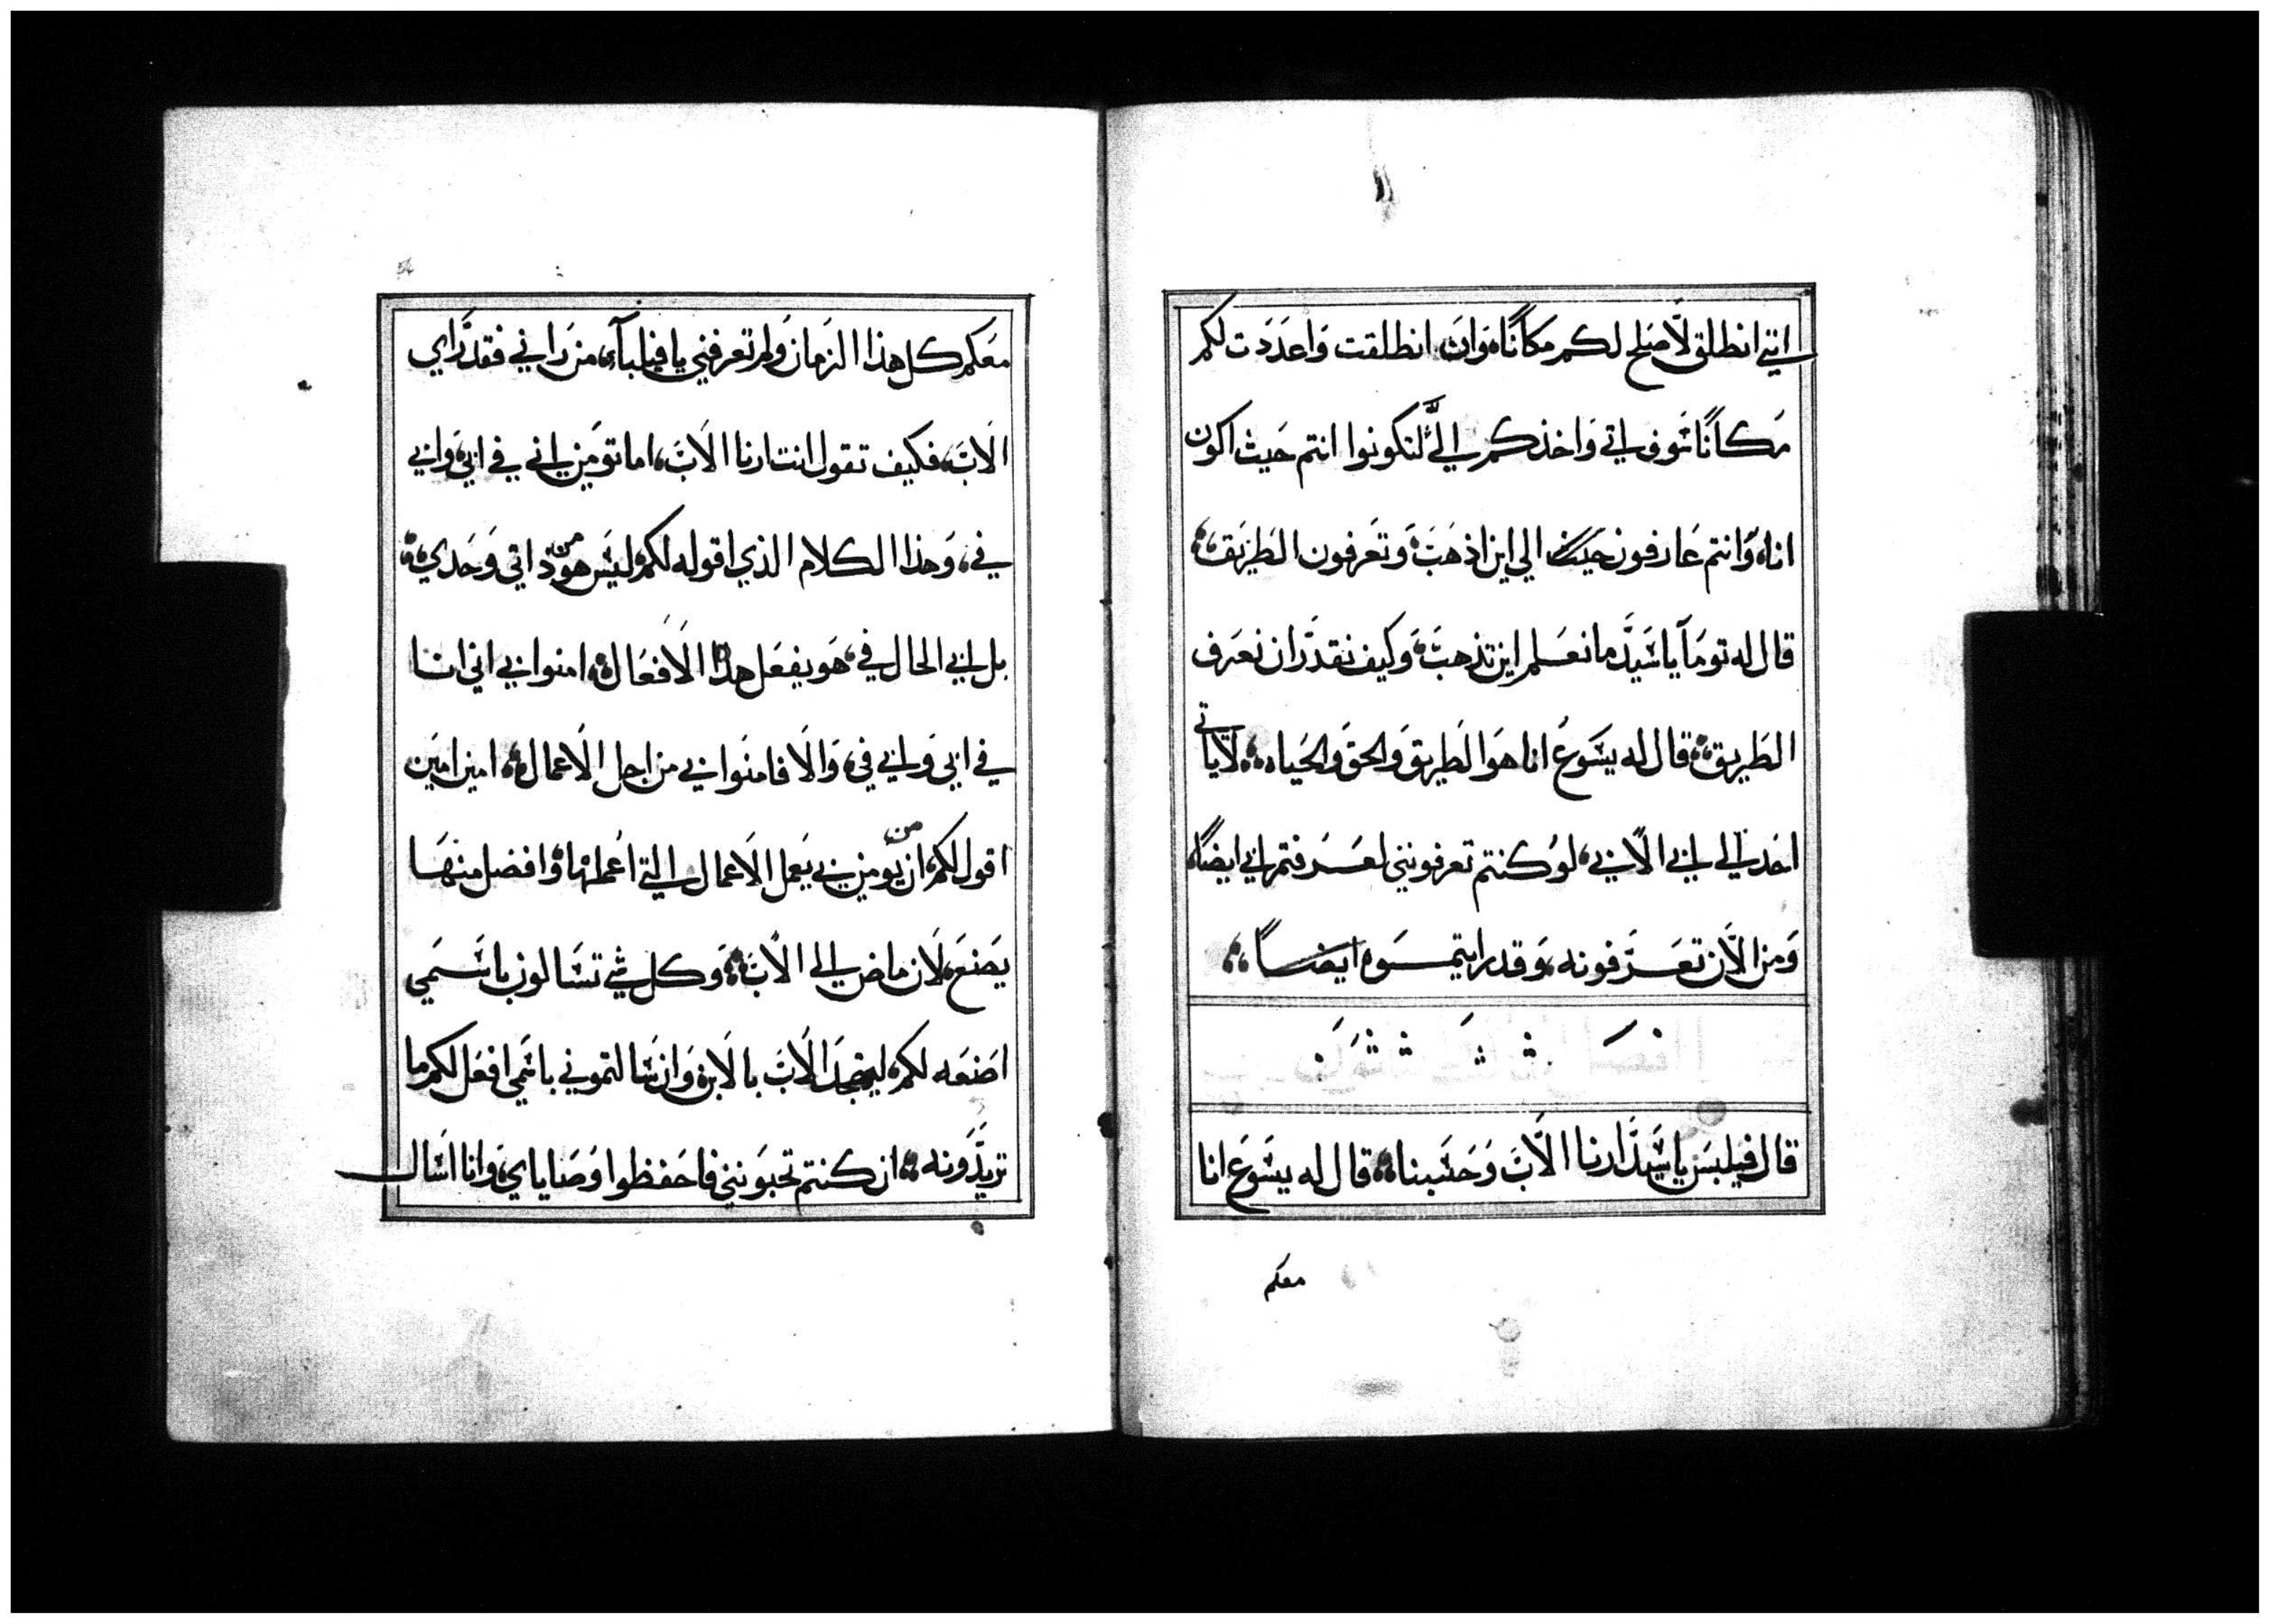 انني انطلق لأصلح لكم مكانًا، وَان انطلقت وَاعدَدَت لكم
مَكانًا سَوف اتي وَاخذكم اليَّ لتكونوا انتم حَيث اكون
انا، وَانتم عَارفون الي اين اذهَبَ، وَتعَرفون الطَريَق،
قال له تومَا يا سَيدَ ما نعَلم اين تذهبَ، وَكيف نقدَر ان نعَرف
الطَريق، قال له يسَوعُ انا هَو الطَريق وَالحق وَالحيَاه، لا ياتي
احَد الي ابي الا بي، لوُ كنتم تعرفونني لعَرَفتم ابي ايضًا،
وَمن الاَن تعَرَفونه، وَقد رايتمَوه ايضًا،
قال فيلبسَ يا سَيدَ ارنا الاَبَ وَحَسَبنا، قال له يسَوعَ انا
معكم
معَكم كل هذا الزمَان وَلم تعرفني يا فيلبآء، منَ راني فقد رَاي
الاَبَ، فكيف تقول انت ارنا الاَبَ، اما تؤمَن اني في ابي، وَابي
في، وَهذا الكلام الذي اقوله لكم، ليسَ هوَ من ذاتي وَحَدي،
بل ابي الحال في، هَو يفعَل هذا الاَفعَال، امنوا بي اني انا
في ابي وَابي في، وَالاَ فامنَوا بي من اجل الاَعمال، امين امَين
اقول لكم، ان من يوَمن بي يَعمل الاَعمال التي اعُملها، وَافضل منهَا
يَصنعَ، لاَن ماض الي الاَبَ، وَكل شي تسَالون باسَمي
اصَنعَه لكم، ليتمجدَ الاَبَ بالاَبن، وَان سَالتموني باسَمي افعَل لكم ما
تريدَوَنه، ان كنتم تحبوَنني فاحَفظوا وَصَاياي، وَانا اسَال